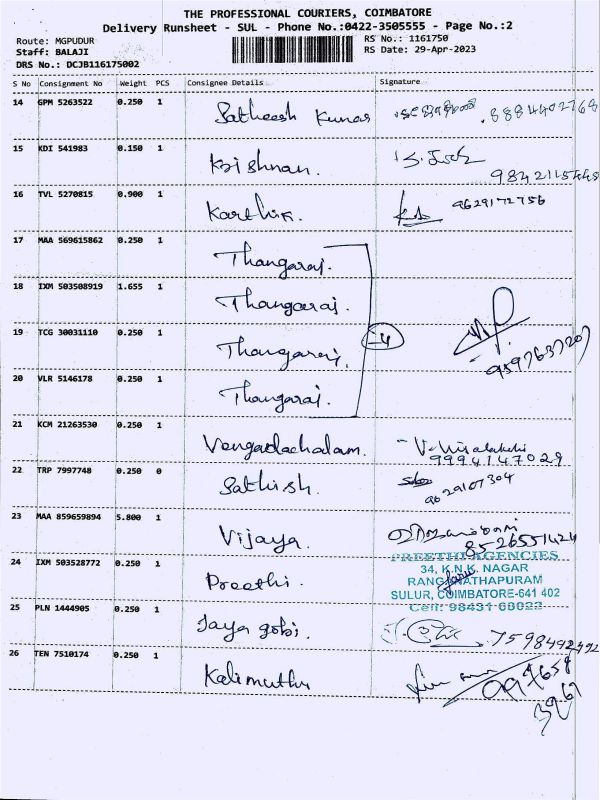 THE PROFESSIONAL COURIERS, COIMBATORE
Delivery Runsheet - SUL - Phone No.:0422-3505555 - Page No.:2
Route: MGPUDUR RS No.: 1161750
Staff: BALAJI RS Date: 29-Apr-2023
DRS No.: DCJB116175002
S No Consignment No Weight PCS Consignee Details Signature
14 GPM 5263522 0.250 1 Satheesh Kumar 8884402768
15 KDI 541983 0.150 1 Krishnan.
16 TVL 5270815 0.900 1 Karthik. 9629172756
17 MAA 569615862 0.250 1 Thangaraj.
18 IXM 503508919 1.655 1 Thangaraj.
19 TCG 30031110 0.250 1 Thangaraj. 4
20 VLR 5146178 0.250 1 Thangaraj.
21 KCM 21263530 0.250 1 Vengadachalam. V. Visalakshi
9994147029
22 TRP 7997748 0.250 0 Sathish. 9629107304
23 MAA 859659894 5.800 1 Vijaya. 8526551424
PREETHI AGENCIES
34, K.N.K. NAGAR
24 IXM 503528772 0.250 1 Preethi. RANGANATHAPURAM
SULUR, COIMBATORE-641 402
Cell: 98431 68022
25 PLN 1444905 0.250 1 Jaya gobi. 7598492492
26 TEN 7510174 0.250 1 Kalimuthu